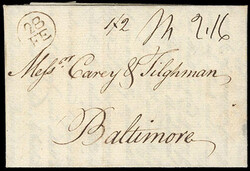 28
FE
42 2,16
Messrs Carey & Tilghman
Baltimore